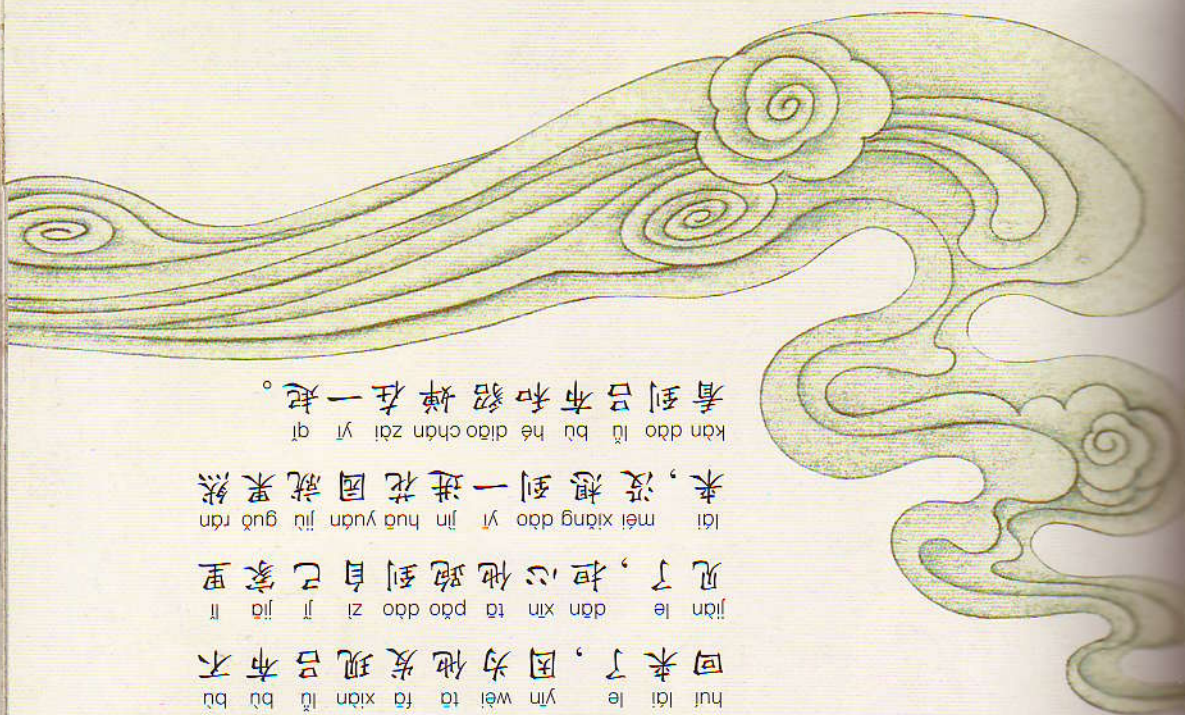 huí lái le yīn wèi tā fā xiàn lǚ bù bù
回来了,因为他发现吕布不
jiàn le dān xīn tā pǎo dào zì jǐ jiā lǐ
见了,担心他跑到自己家里
lái méi xiǎng dào yī jìn huā yuán jiù guǒ rán
来,没想到一进花园就果然
kàn dào lǚ bù hé diāo chán zài yī qǐ
看到吕布和貂蝉在一起。